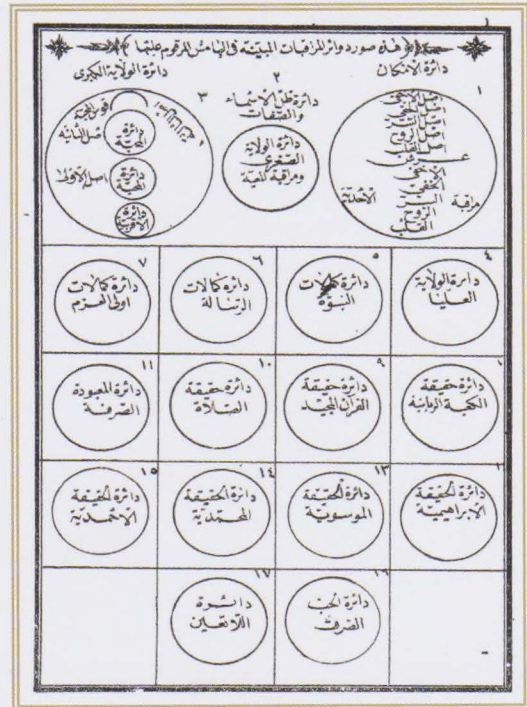 ١
هذه صور دوائر المراقبات المبينة فى الهامش المرقوم عليها
دائرة الامكان
١
اصل الاخفى
اصل الخفى
اصل السر
اصل الروح
اصل القلب
عرش
الاخفى
الخفى
مراقبة السر الاحدية
الروح
القلب
٢
دائرة ظل الاسماء
والصفات
دائرة الولاية
الصغرى
ومراقبة المعية
دائرة الولاية الكبرى
٣
قوس
اصل الثانية
دائرة
المحبة
اصل الاولى
دائرة
المحبة
دائرة
الاقربية
٤
دائرة الولاية
العليا
٥
دائرة كمالات
النبوة
٦
دائرة كمالات
الرسالة
٧
دائرة كمالات
اولى العزم
دائرة حقيقة
الكعبة الربانية
٩
دائرة حقيقة
القرآن المجيد
١٠
دائرة حقيقة
الصلاة
١١
دائرة المعبودة
الصرفة
دائرة الحقيقة
الابراهيمية
١٣
دائرة الحقيقة
الموسوية
١٤
دائرة الحقيقة
المحمدية
١٥
دائرة الحقيقة
الاحمدية
١٦
دائرة الحب
الصرف
١٧
دائرة
اللاتعين